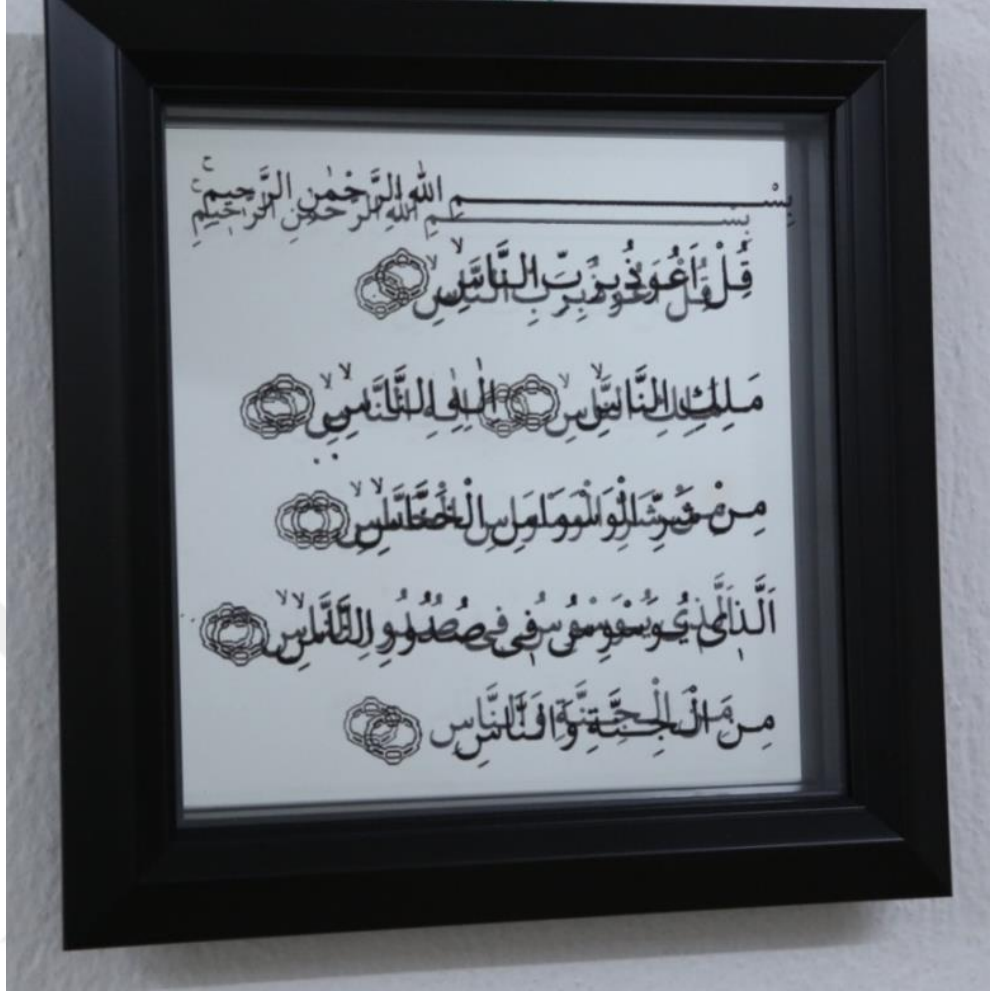 بِسْمِ اللّٰهِ الرَّحْمٰنِ الرَّحِيمِ
قُلْ اَعُوذُ بِرَبِّ النَّاسِ
مَلِكِ النَّاسِ اِلٰهِ النَّاسِ
مِنْ شَرِّ الْوَسْوَاسِ الْخَنَّاسِ
اَلَّذِي يُوَسْوِسُ فِي صُدُورِ النَّاسِ
مِنَ الْجِنَّةِ وَالنَّاسِ